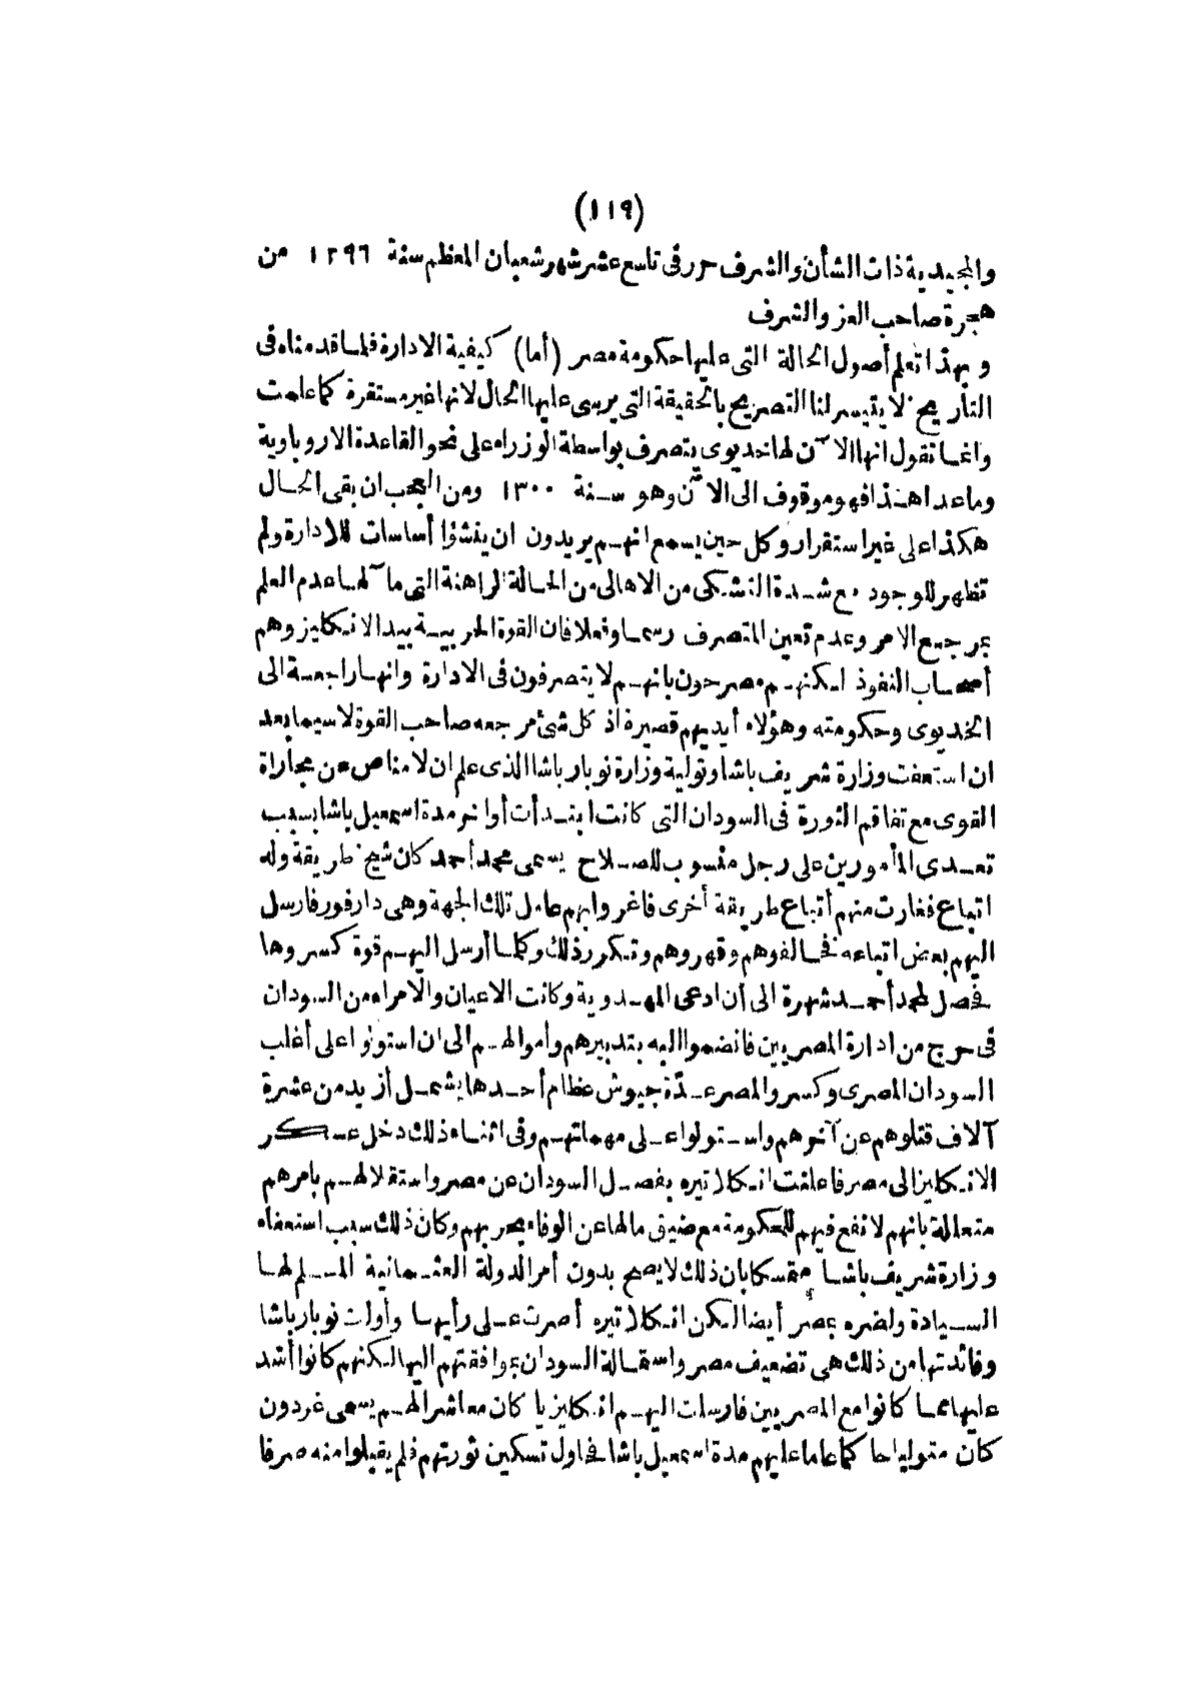 (١١٩)
والمجيدية ذات الشأن والشرف حرر في تاسع عشر شهر شعبان المعظم سنة ١٢٩٦ من
هجرة صاحب العز والشرف
وبهذا تعلم أصول الحالة التي عليها حكومة مصر (أما) كيفية الادارة فلما قدمناه في
التاريخ لا يتيسر لنا التصريح بالحقيقة التي يرسى عليها الحال لانها غير مستقرة كما علمت
وانما نقول انها الآن لها خديوى يتصرف بواسطة الوزراء على نحو القاعدة الاروباوية
وما عدا هذا فهو موقوف الى الآن وهو سنة ١٣٠٠ ومن العجب ان بقى الحال
هكذا على غير استقرار وكل حين يسمع انهم يريدون ان ينشؤا أساسات للادارة ولم
تظهر للوجود مع شدة التشكى من الاهالى من الحالة الراهنة التي مآلها عدم العلم
بمرجع الامر وعدم تعين المتصرف رسما وفعلا فان القوة الحربية بيد الانكليز وهم
أصحاب النفوذ لكنهم مصرحون بانهم لا يتصرفون في الادارة وانها راجعة الى
الخديوى وحكومته وهؤلاء أيديهم قصيرة اذ كل شئ مرجعه صاحب القوة لا سيما بعد
ان استعفت وزارة شريف باشا وتولية وزارة نوبار باشا الذى علم ان لا مناص عن مجاراة
القوى مع تفاقم الثورة في السودان التي كانت ابتدأت أواخر مدة اسمعيل باشا بسبب
تعدى المأمورين على رجل منسوب للصلاح يسمى محمد أحمد كان شيخ طريقة وله
اتباع فغارت منهم أتباع طريقة أخرى فاغروا بهم عامل تلك الجهة وهي دارفور فارسل
اليهم بعض اتباعه فخالفوهم وقهروهم وتكرر ذلك وكلما أرسل اليهم قوة كسروها
فحصل لمحمد أحمد شهرة الى أن ادعى المهدوية وكانت الاعيان والامراء من السودان
في حرج من ادارة المصريين فانضموا اليه بتدبيرهم وأموالهم الى ان استولوا على أغلب
السودان المصرى وكسروا لمصر عدّة جيوش عظام أحدها يشمل أزيد من عشرة
آلاف قتلوهم عن آخرهم واستولوا على مهماتهم وفى اثناء ذلك دخل عسكر
الانكليز الى مصر فاعلنت انكلاتيره بفصل السودان عن مصر واستقلالهم بامرهم
متعللة بانهم لا نفع فيهم للحكومة مع ضيق مالها عن الوفاء بحربهم وكان ذلك سبب استعفاء
وزارة شريف باشا متمسكا بان ذلك لا يصح بدون أمر الدولة العثمانية المسلم لها
السيادة ولضره بمصر أيضا لكن انكلاتيره أصرت على رأيها وأولت نوبار باشا
وفائدتها من ذلك هي تضعيف مصر واستمالة السودان بموافقتهم اليها لكنهم كانوا أشد
عليها مما كانوا مع المصريين فارسلت اليهم انكليزيا كان معاشرا لهم يسمى غردون
كان متوليا حاكما عاما عليهم مدة اسمعيل باشا فحاول تسكين ثورتهم فلم يقبلوا منه صرفا